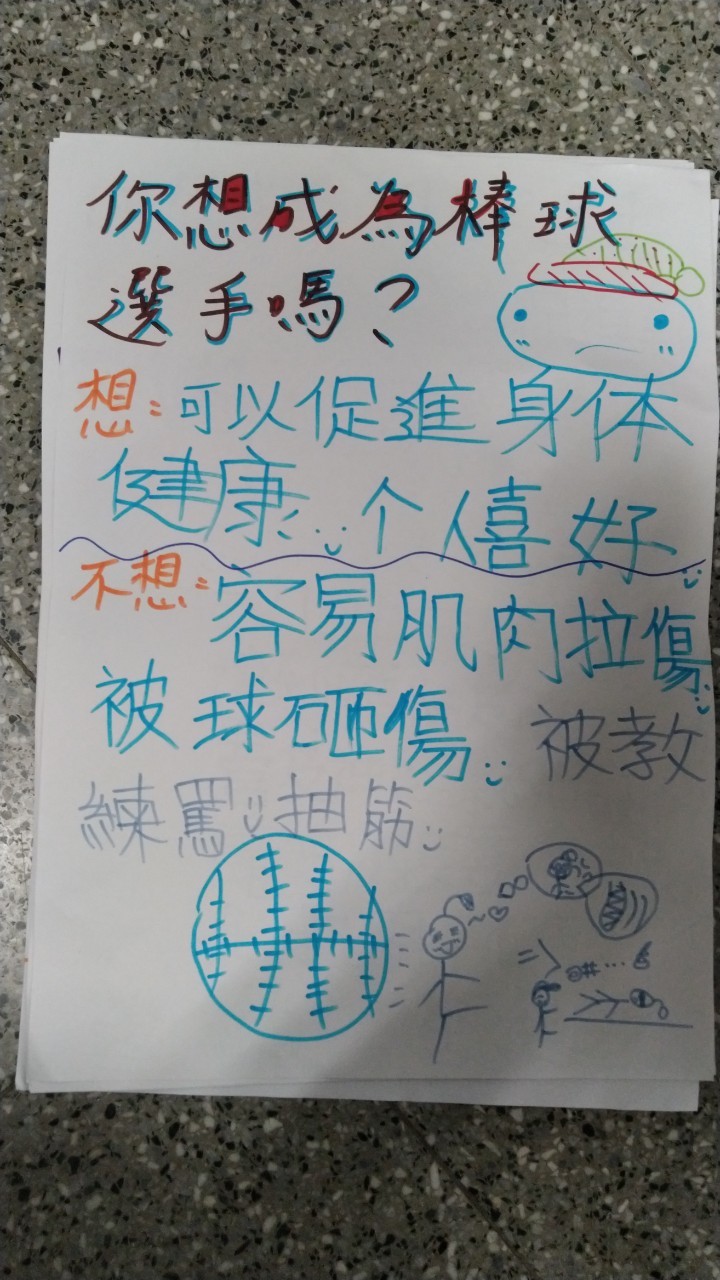 你想成為棒球
選手嗎？
想：可以促進身体
健康、个人喜好
不想：容易肌肉拉傷、
被球砸傷、被教
練罵、抽筋、
@#…